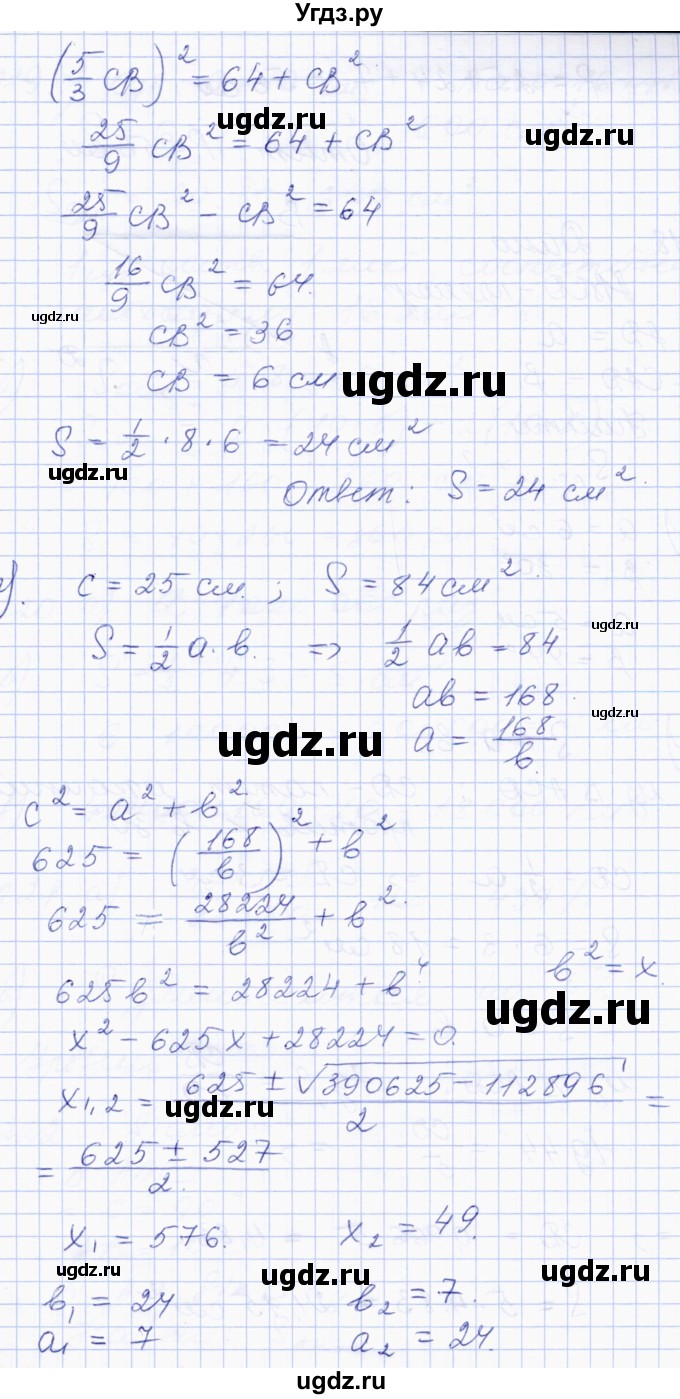 Угдз.ру
(5/3 CB)² = 64 + CB²
ugdz.ru
25/9 CB² = 64 + CB²
ugdz.ru
25/9 CB² − CB² = 64
ugdz.ru
16/9 CB² = 64.
ugdz.ru
CB² = 36
CB = 6 см
ugdz.ru
S = 1/2 · 8 · 6 = 24 см²
ugdz.ru
Ответ: S = 24 см².
c = 25 см. ; S = 84 см².
ugdz.ru
S = 1/2 a · b. => 1/2 ab = 84
ab = 168.
ugdz.ru
ugdz.ru
a = 168/b.
c² = a² + b².
625 = (168/b)² + b²
625 = 28224/b² + b².
625b² = 28224 + b⁴ b² = x.
ugdz.ru
x² − 625x + 28224 = 0.
ugdz.ru
x₁,₂ = (625 ± √(390625 − 112896))/2 =
ugdz.ru
= (625 ± 527)/2.
x₁ = 576. x₂ = 49.
ugdz.ru
ugdz.ru
ugdz.ru
b₁ = 24 b₂ = 7.
a₁ = 7 a₂ = 24.
ugdz.ru